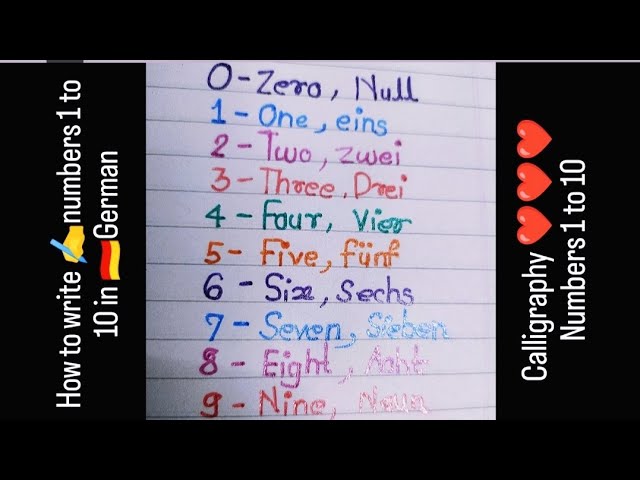 How to write ✍️numbers 1 to
10 in 🇩🇪German
0 - Zero, Null
1 - One, eins
2 - Two, zwei
3 - Three, Drei
4 - Four, Vier
5 - Five, fünf
6 - Six, Sechs
7 - Seven, Sieben
8 - Eight, Acht
9 - Nine, Neun
Calligraphy ❤️❤️❤️
Numbers 1 to 10